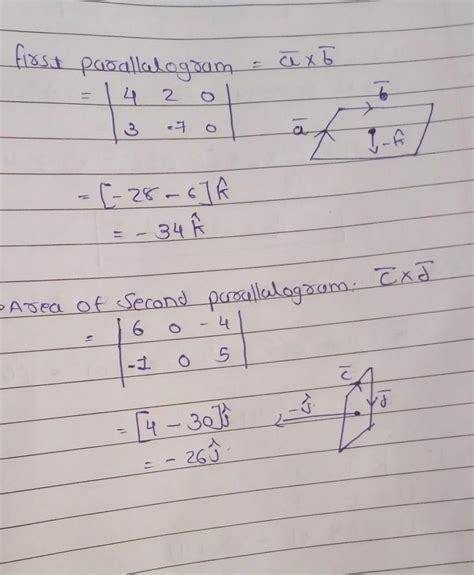 first parallalogram = a̅ × b̅
= | 4 2 0 |
| 3 -7 0 |
b̅
a̅
-k̂
= [-28 - 6] k̂
= - 34 k̂
Area of Second parallalogram: c̅ × d̅
= | 6 0 -4 |
| -1 0 5 |
c̅
d̅
-ĵ
= [4 - 30] ĵ
= - 26 ĵ